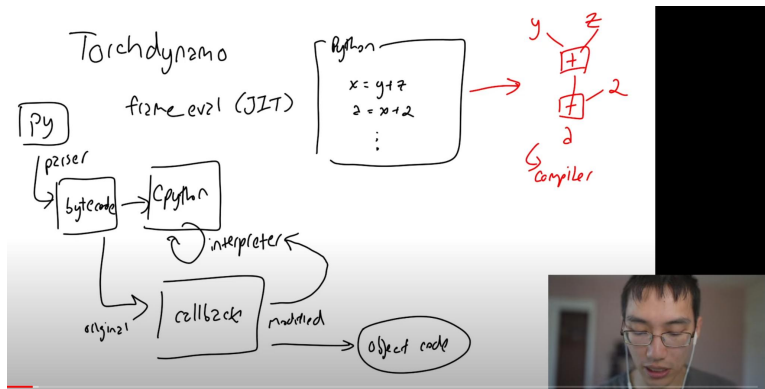 Torchdynamo
frame eval (JIT)
Python
x = y+z
a = x+2
⋮
y z
+
+ 2
a
compiler
py
parser
bytecode
Cpython
interpreter
original
callback
modified
object code